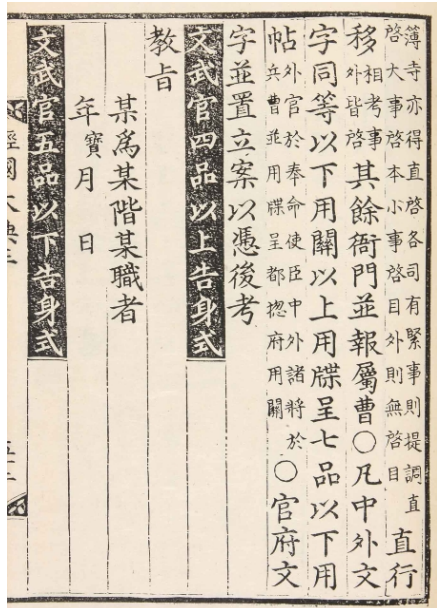 簿寺亦得直啓各司有緊事則提調直啓大事啓本小事啓目外則無啓目直行
移相考事外皆啓其餘衙門並報屬曹○凡中外文
字同等以下用關以上用牒呈七品以下用
帖外官於奉命使臣中外諸將於兵曹並用牒呈都揔府用關○官府文
字並置立案以憑後考
文武官四品以上告身式
教旨
某爲某階某職者
年寶月 日
文武官五品以下告身式
經國大典三